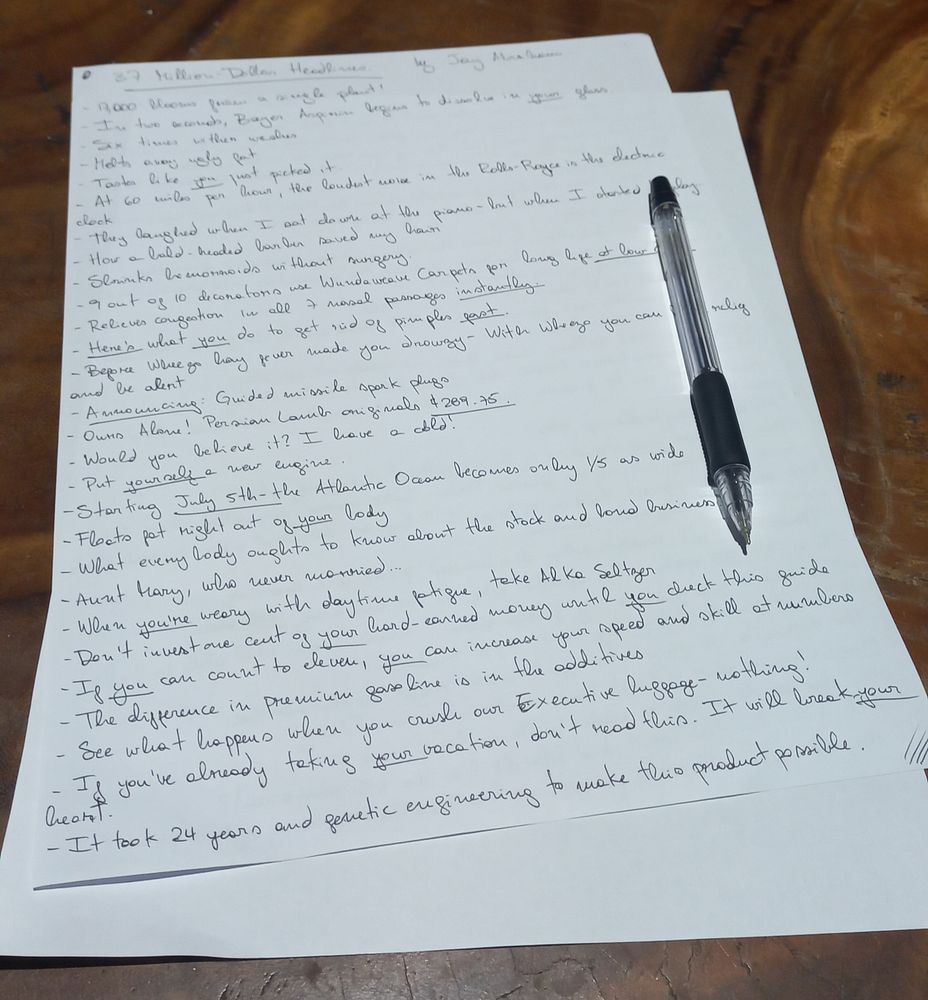 37 Million-Dollar Headlines by Jay Abraham
- 17,000 blooms from a single plant!
- In two seconds, Bayer Aspirin begins to dissolve in your glass
- Six times whiter washes
- Melts away ugly fat
- Tastes like you just picked it.
- At 60 miles per hour, the loudest noise in the Rolls-Royce is the electric
clock
- They laughed when I sat down at the piano-but when I started
- How a bald-headed barber saved my hair
- Shrinks hemorrhoids without surgery.
- 9 out of 10 decorators use Wundaweave Carpets for long life at low
- Relieves congestion in all 7 nasal passages instantly.
- Here's what you do to get rid of pimples fast.
- Before Wheezo hay fever made you drowzy- With Wheezo you can
and be alert
- Announcing: Guided missile spark plugs
- Ours Alone! Persian Lamb originals $289.75.
- Would you believe it? I have a cold!
- Put yourself a new engine.
- Starting July 5th-the Atlantic Ocean becomes only 1/5 as wide
- Floats fat right out of your body
- What everybody oughts to know about the stock and bond business
- Aunt Mary, who never married...
- When you're weary with daytime fatigue, take Alka Seltzer
- Don't invest one cent of your hard-earned money until you check this guide
- If you can count to eleven, you can increase your speed and skill at numbers
- The difference in premium gasoline is in the additives
- See what happens when you crush our Executive luggage-nothing!
- If you've already taking your vacation, don't read this. It will break your
heart.
- It took 24 years and genetic engineering to make this product possible.